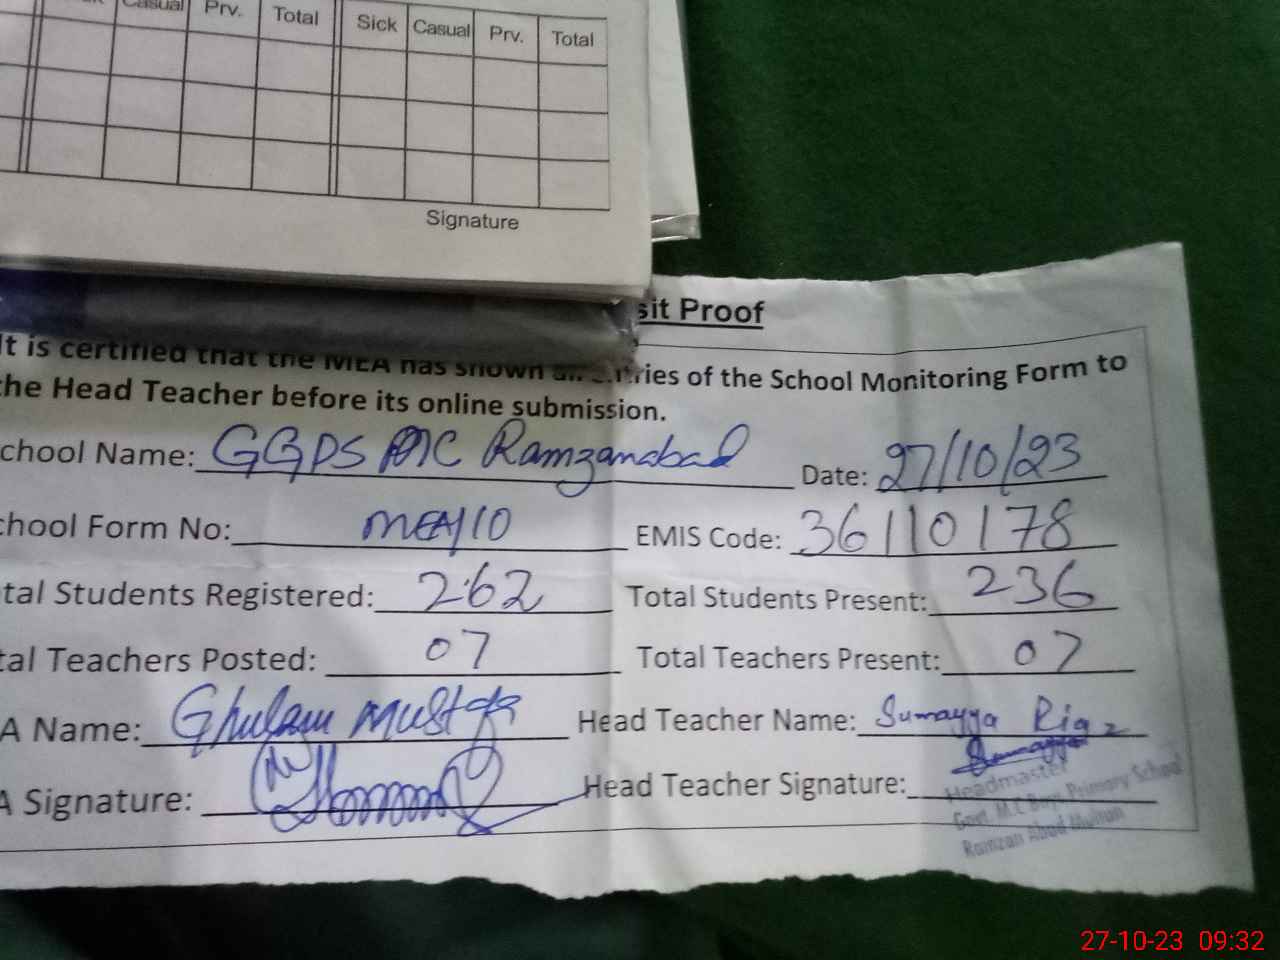 Casual Prv. Total Sick Casual Prv. Total
Signature
sit Proof
It is certified that the MEA has shown all entries of the School Monitoring Form to
the Head Teacher before its online submission.
chool Name: GGPS MC Ramzanabad Date: 27/10/23
chool Form No: MEA/10 EMIS Code: 36110178
tal Students Registered: 262 Total Students Present: 236
tal Teachers Posted: 07 Total Teachers Present: 07
A Name: Ghulam Mustafa Head Teacher Name: Sumayya Riaz
A Signature: Head Teacher Signature: Sumayya
Headmaster
Govt. M.C Boys Primary School
Ramzan Abad Multan
27-10-23 09:32